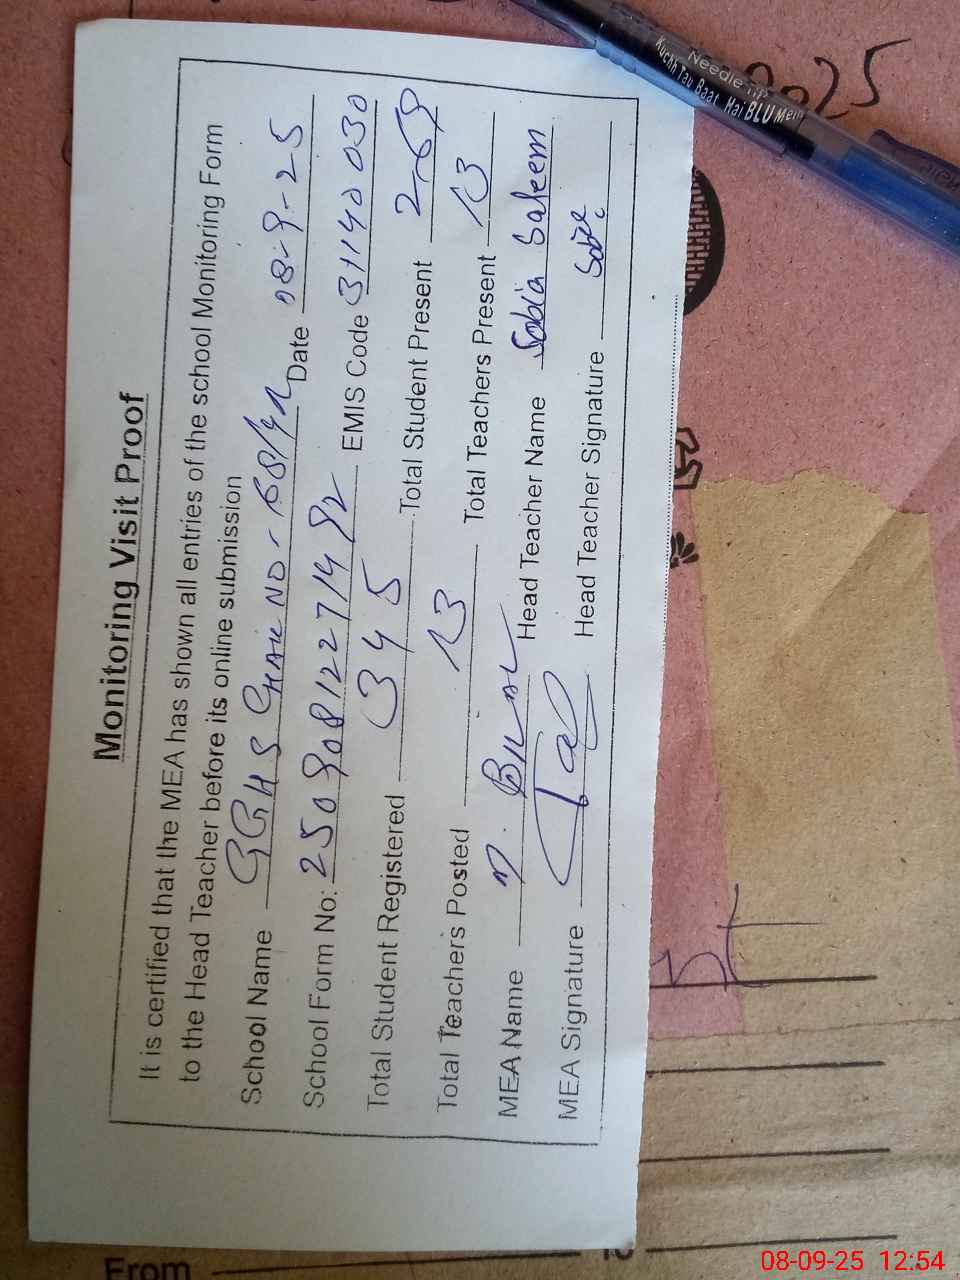 Monitoring Visit Proof
It is certified that the MEA has shown all entries of the school Monitoring Form
to the Head Teacher before its online submission
School Name GGHS CHAK NO - 68/4R Date 08-9-25
School Form No: 2509081227149 EMIS Code 31140030
Total Student Registered 345 Total Student Present 269
Total Teachers Posted 13 Total Teachers Present 13
MEA Name M. BILAL Head Teacher Name Sobia Saleem
MEA Signature Head Teacher Signature
Needle TIP
Kuchh Tau Baat Hai BLU Mein
2025
From
08-09-25 12:54